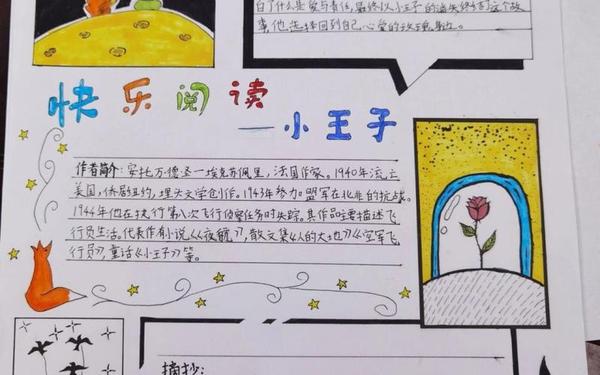 白了什么是爱与责任,最终以小王子的消失终结了这个故
事,他选择回到自己心爱的玫瑰身边。
快乐阅读
—小王子
作者简介:安托万·德·圣-埃克苏佩里,法国作家。1940年流亡
美国,侨居纽约,埋头文学创作。1943年参加盟军在北非的抗战。
1944年他在执行第八次飞行侦察任务时失踪。其作品主要描述飞
行员生活。代表作有小说《夜航》,散文集《人的大地》《空军飞
行员》,童话《小王子》等。
摘抄: